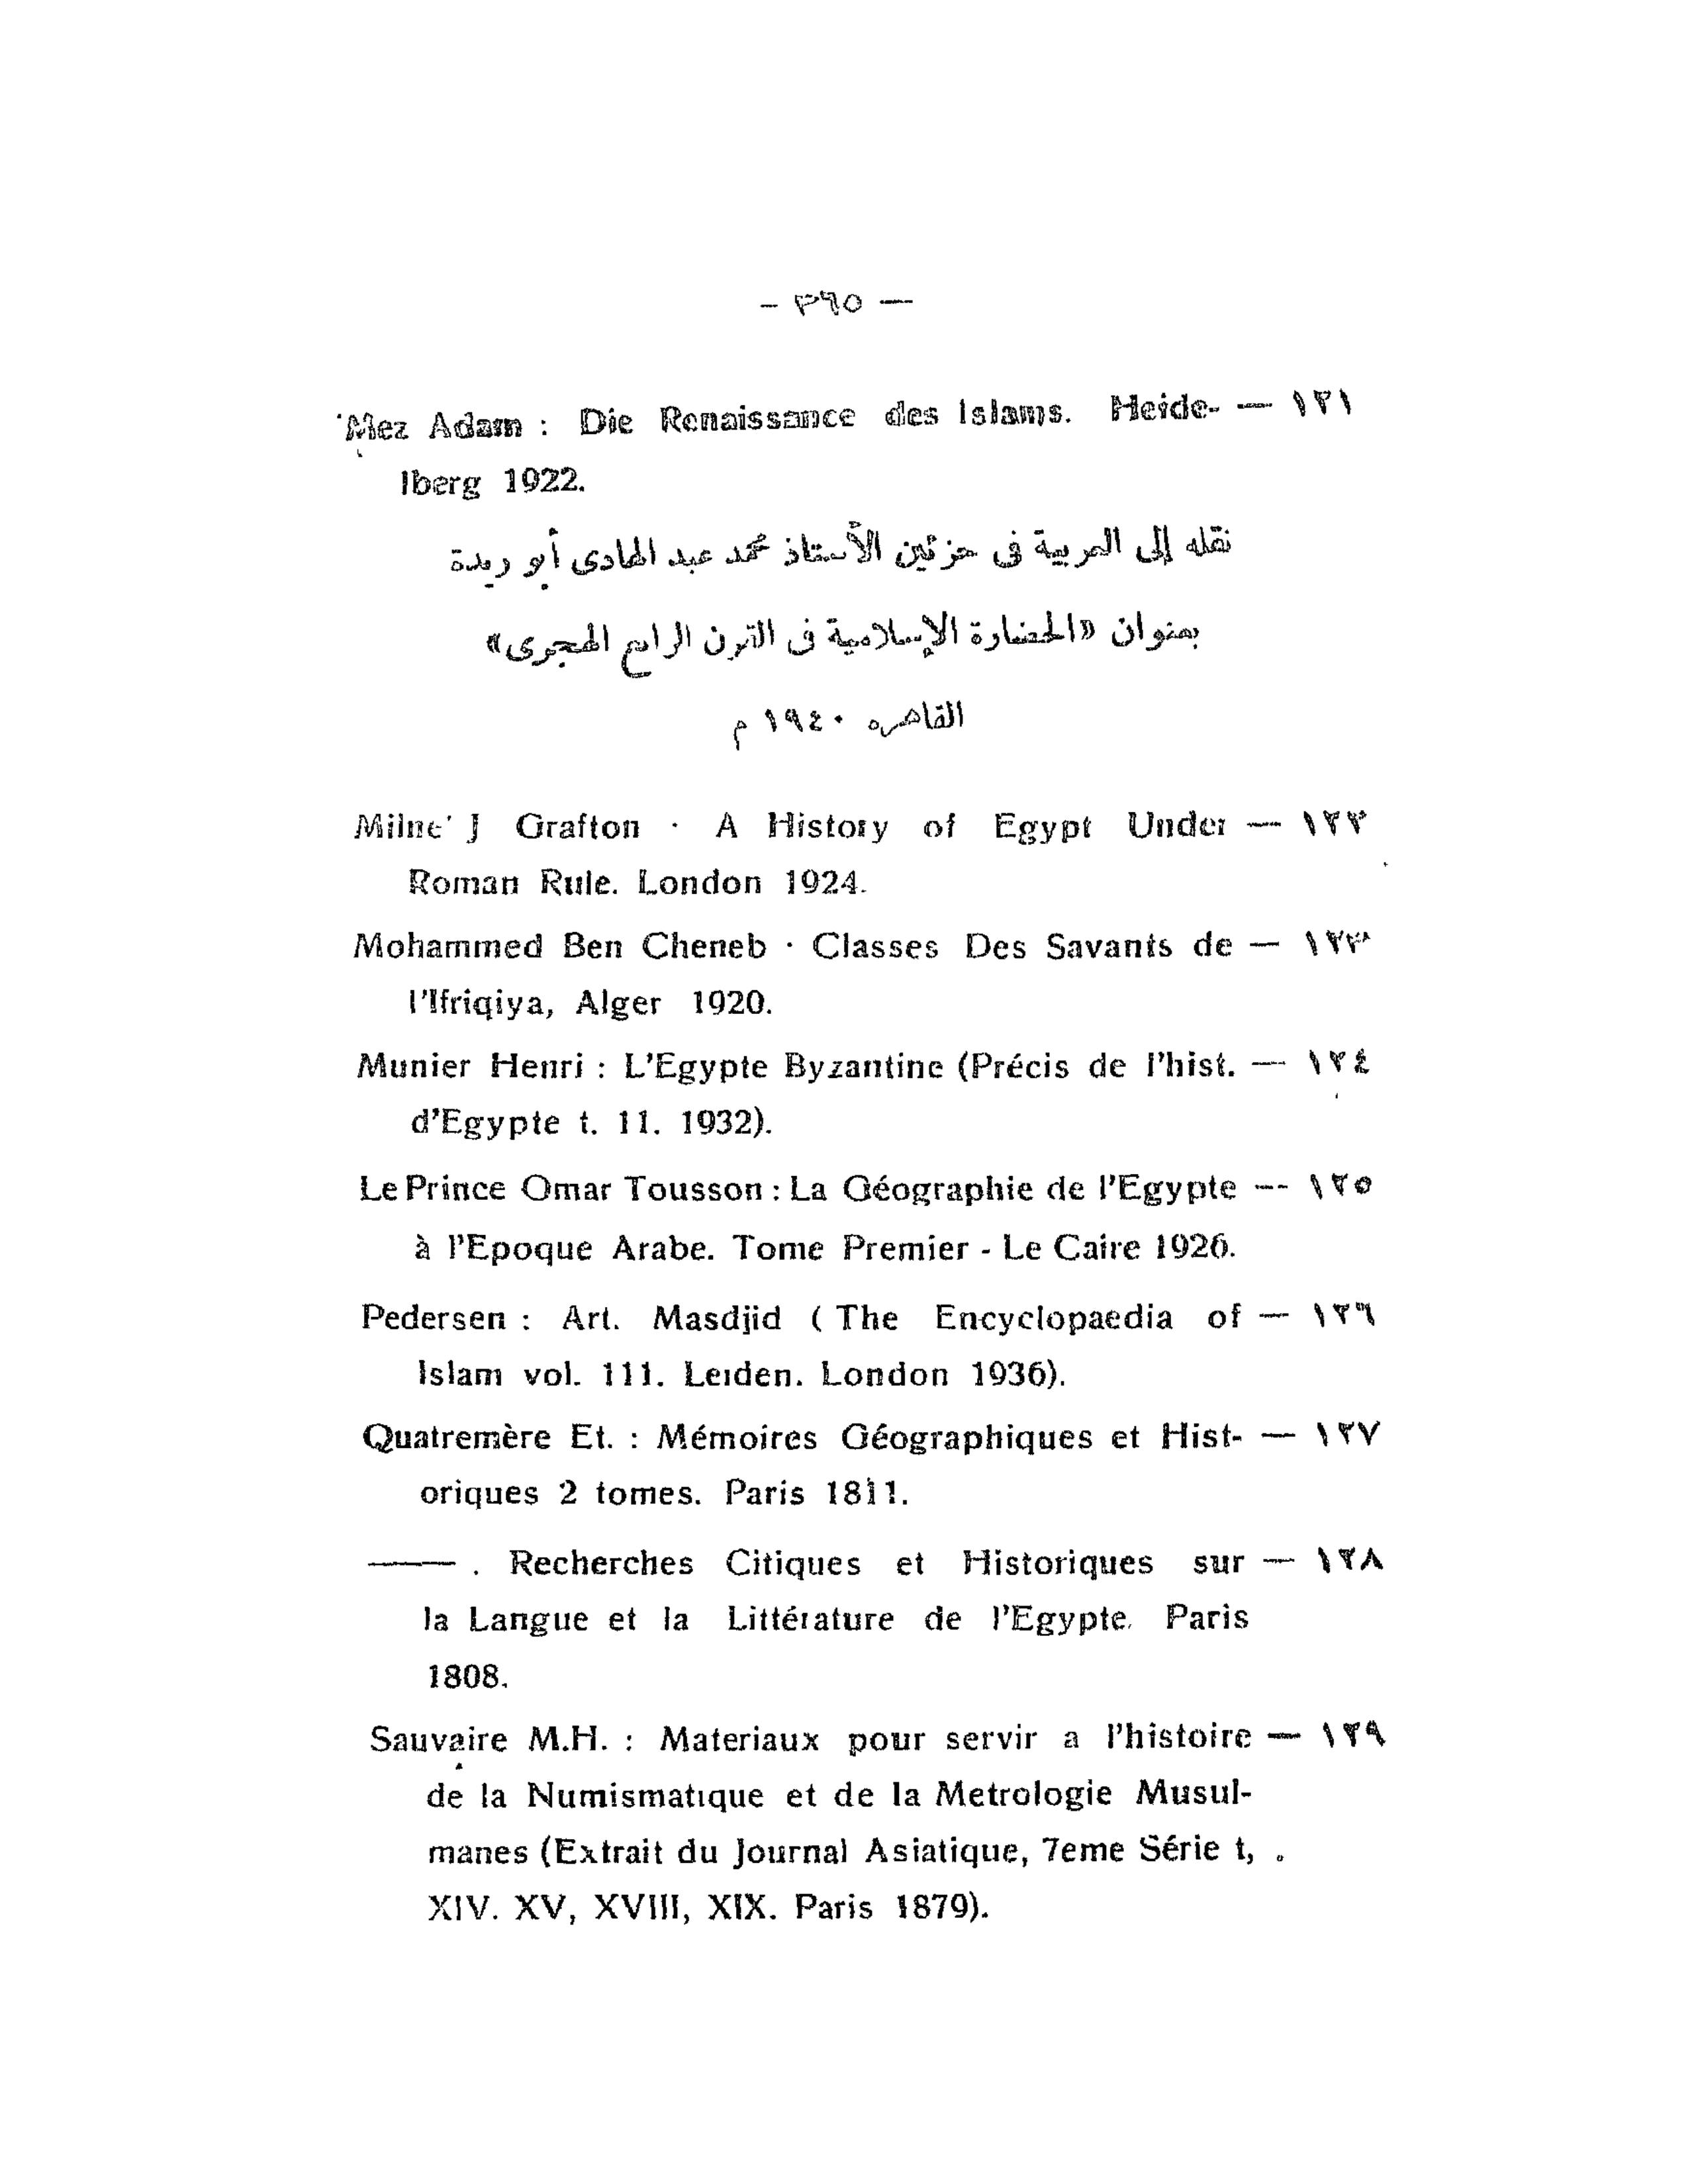 — ٣٦٥ —
Mez Adam : Die Renaissance des Islams. Heide- — ١٢١
lberg 1922.
نقله إلى العربية فى جزئين الأستاذ محمد عبد الهادى أبو ريدة
بعنوان «الحضارة الإسلامية فى القرن الرابع الهجرى»
القاهره ١٩٤٠ م
Milne J Grafton · A History of Egypt Under — ١٢٢
Roman Rule. London 1924.
Mohammed Ben Cheneb · Classes Des Savants de — ١٢٣
l'Ifriqiya, Alger 1920.
Munier Henri : L'Egypte Byzantine (Précis de l'hist. — ١٢٤
d'Egypte t. 11. 1932).
Le Prince Omar Tousson : La Géographie de l'Egypte — ١٢٥
à l'Epoque Arabe. Tome Premier - Le Caire 1926.
Pedersen : Art. Masdjid ( The Encyclopaedia of — ١٢٦
Islam vol. 111. Leiden. London 1936).
Quatremère Et. : Mémoires Géographiques et Hist- — ١٢٧
oriques 2 tomes. Paris 1811.
—— . Recherches Citiques et Historiques sur — ١٢٨
la Langue et la Littérature de l'Egypte. Paris
1808.
Sauvaire M.H. : Materiaux pour servir a l'histoire — ١٢٩
de la Numismatique et de la Metrologie Musul-
manes (Extrait du Journal Asiatique, 7eme Série t, .
XIV. XV, XVIII, XIX. Paris 1879).